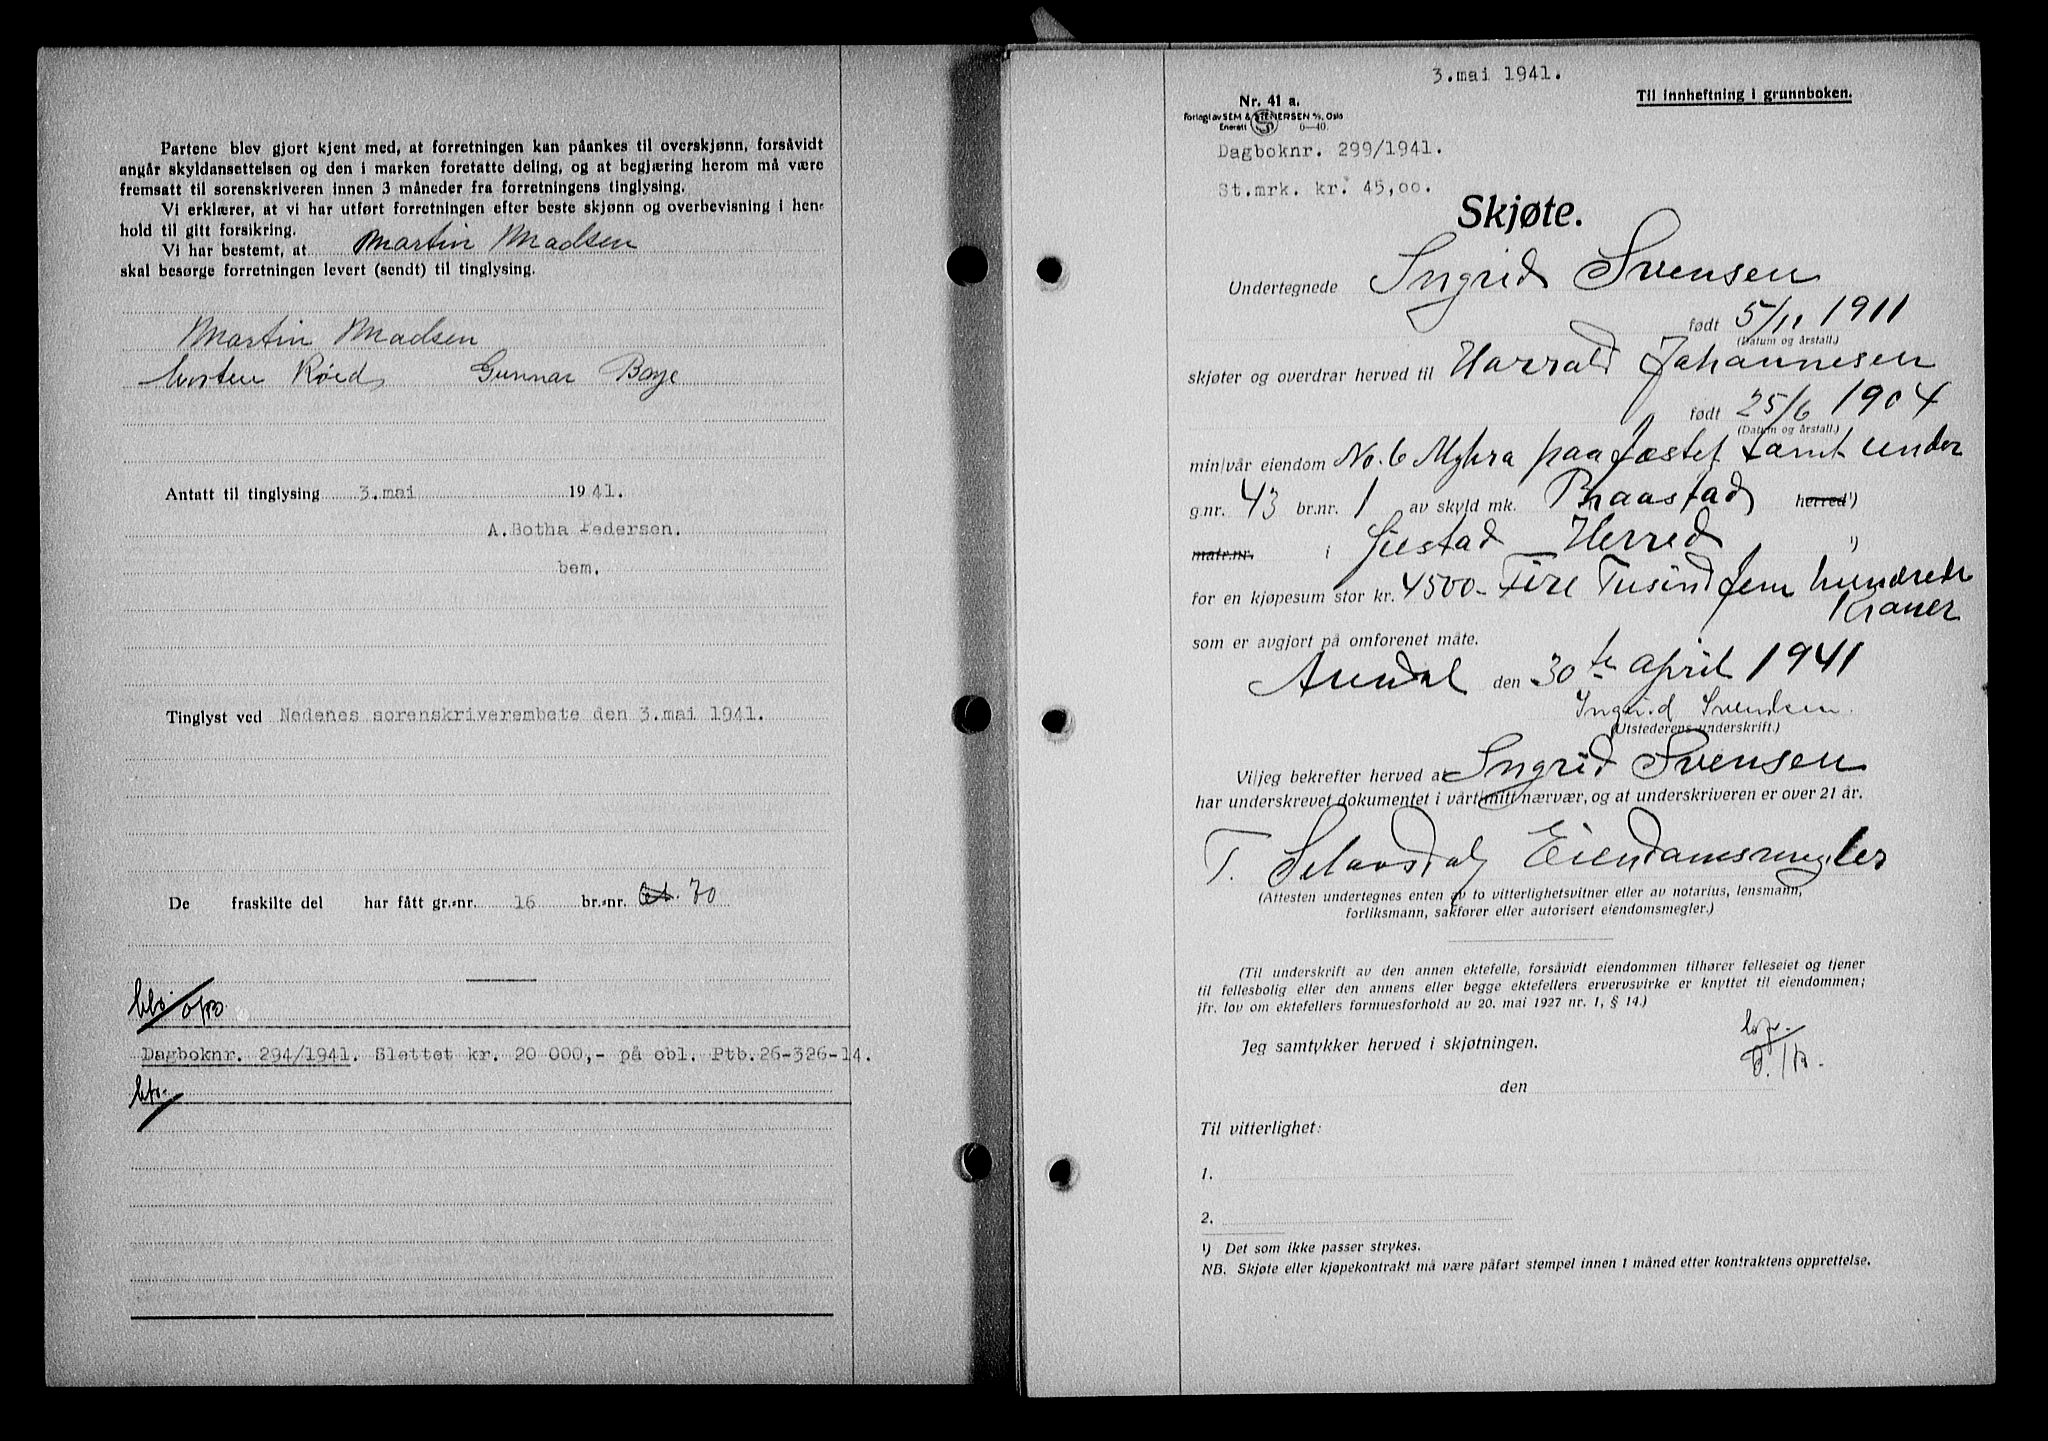 Partene blev gjort kjent med, at forretningen kan påankes til overskjønn, forsåvidt
angår skyldansettelsen og den i marken foretatte deling, og at begjæring herom må være
fremsatt til sorenskriveren innen 3 måneder fra forretningens tinglysing.
Vi erklærer, at vi har utført forretningen efter beste skjønn og overbevisning i hen-
hold til gitt forsikring.
Vi har bestemt, at Martin Madsen
skal besørge forretningen levert (sendt) til tinglysing.
Martin Madsen
Røed Gunnar Boye
Antatt til tinglysing 3.mai 1941.
A.Botha Pedersen.
bem.
Tinglyst ved Nedenes sorenskriverembete den 3.mai 1941.
De fraskilte del har fått gr.-nr. 16 br.-nr. 70
Dagboknr. 294/1941. Slettet kr. 20 000,- på obl. Ptb.26-326-14.
3.mai 1941.
Nr. 41 a.
Til innheftning i grunnboken.
Forlagt av SEM & STENERSEN A/S, Oslo
Enerett S 6—40.
Dagboknr. 299/1941.
St.mrk. kr. 45,00.
Skjøte.
Undertegnede Ingrid Svensen
født 5/11 1911
(Datum og årstall.)
skjøter og overdrar herved til Harrald Johannesen
født 25/6 1904
(Datum og årstall.)
min/vår eiendom No. 6 Myhra paa Jæstet samt under
g.nr. 43 br.nr. 1 av skyld mk. Braastad herred ¹)
matr.nr. i Øiestad Herred ¹)
for en kjøpesum stor kr. 4500- Fire Tusind fem hundrede
Kroner
som er avgjort på omforenet måte.
Arendal den 30te april 1941
Ingrid Svendsen.
(Utstederens underskrift.)
Vi/jeg bekrefter herved at Ingrid Svensen
har underskrevet dokumentet i vårt/mitt nærvær, og at underskriveren er over 21 år.
T. Selaasdal Eiendomsmegler
(Attesten undertegnes enten av to vitterlighetsvitner eller av notarius, lensmann,
forliksmann, sakfører eller autorisert eiendomsmegler.)
(Til underskrift av den annen ektefelle, forsåvidt eiendommen tilhører felleseiet og tjener
til fellesbolig eller den annens eller begge ektefellers ervervsvirke er knyttet til eiendommen;
jfr. lov om ektefellers formuesforhold av 20. mai 1927 nr. 1, § 14.)
Jeg samtykker herved i skjøtningen.
den
Til vitterlighet:
1.
2.
¹) Det som ikke passer strykes.
NB. Skjøte eller kjøpekontrakt må være påført stempel innen 1 måned etter kontraktens opprettelse.